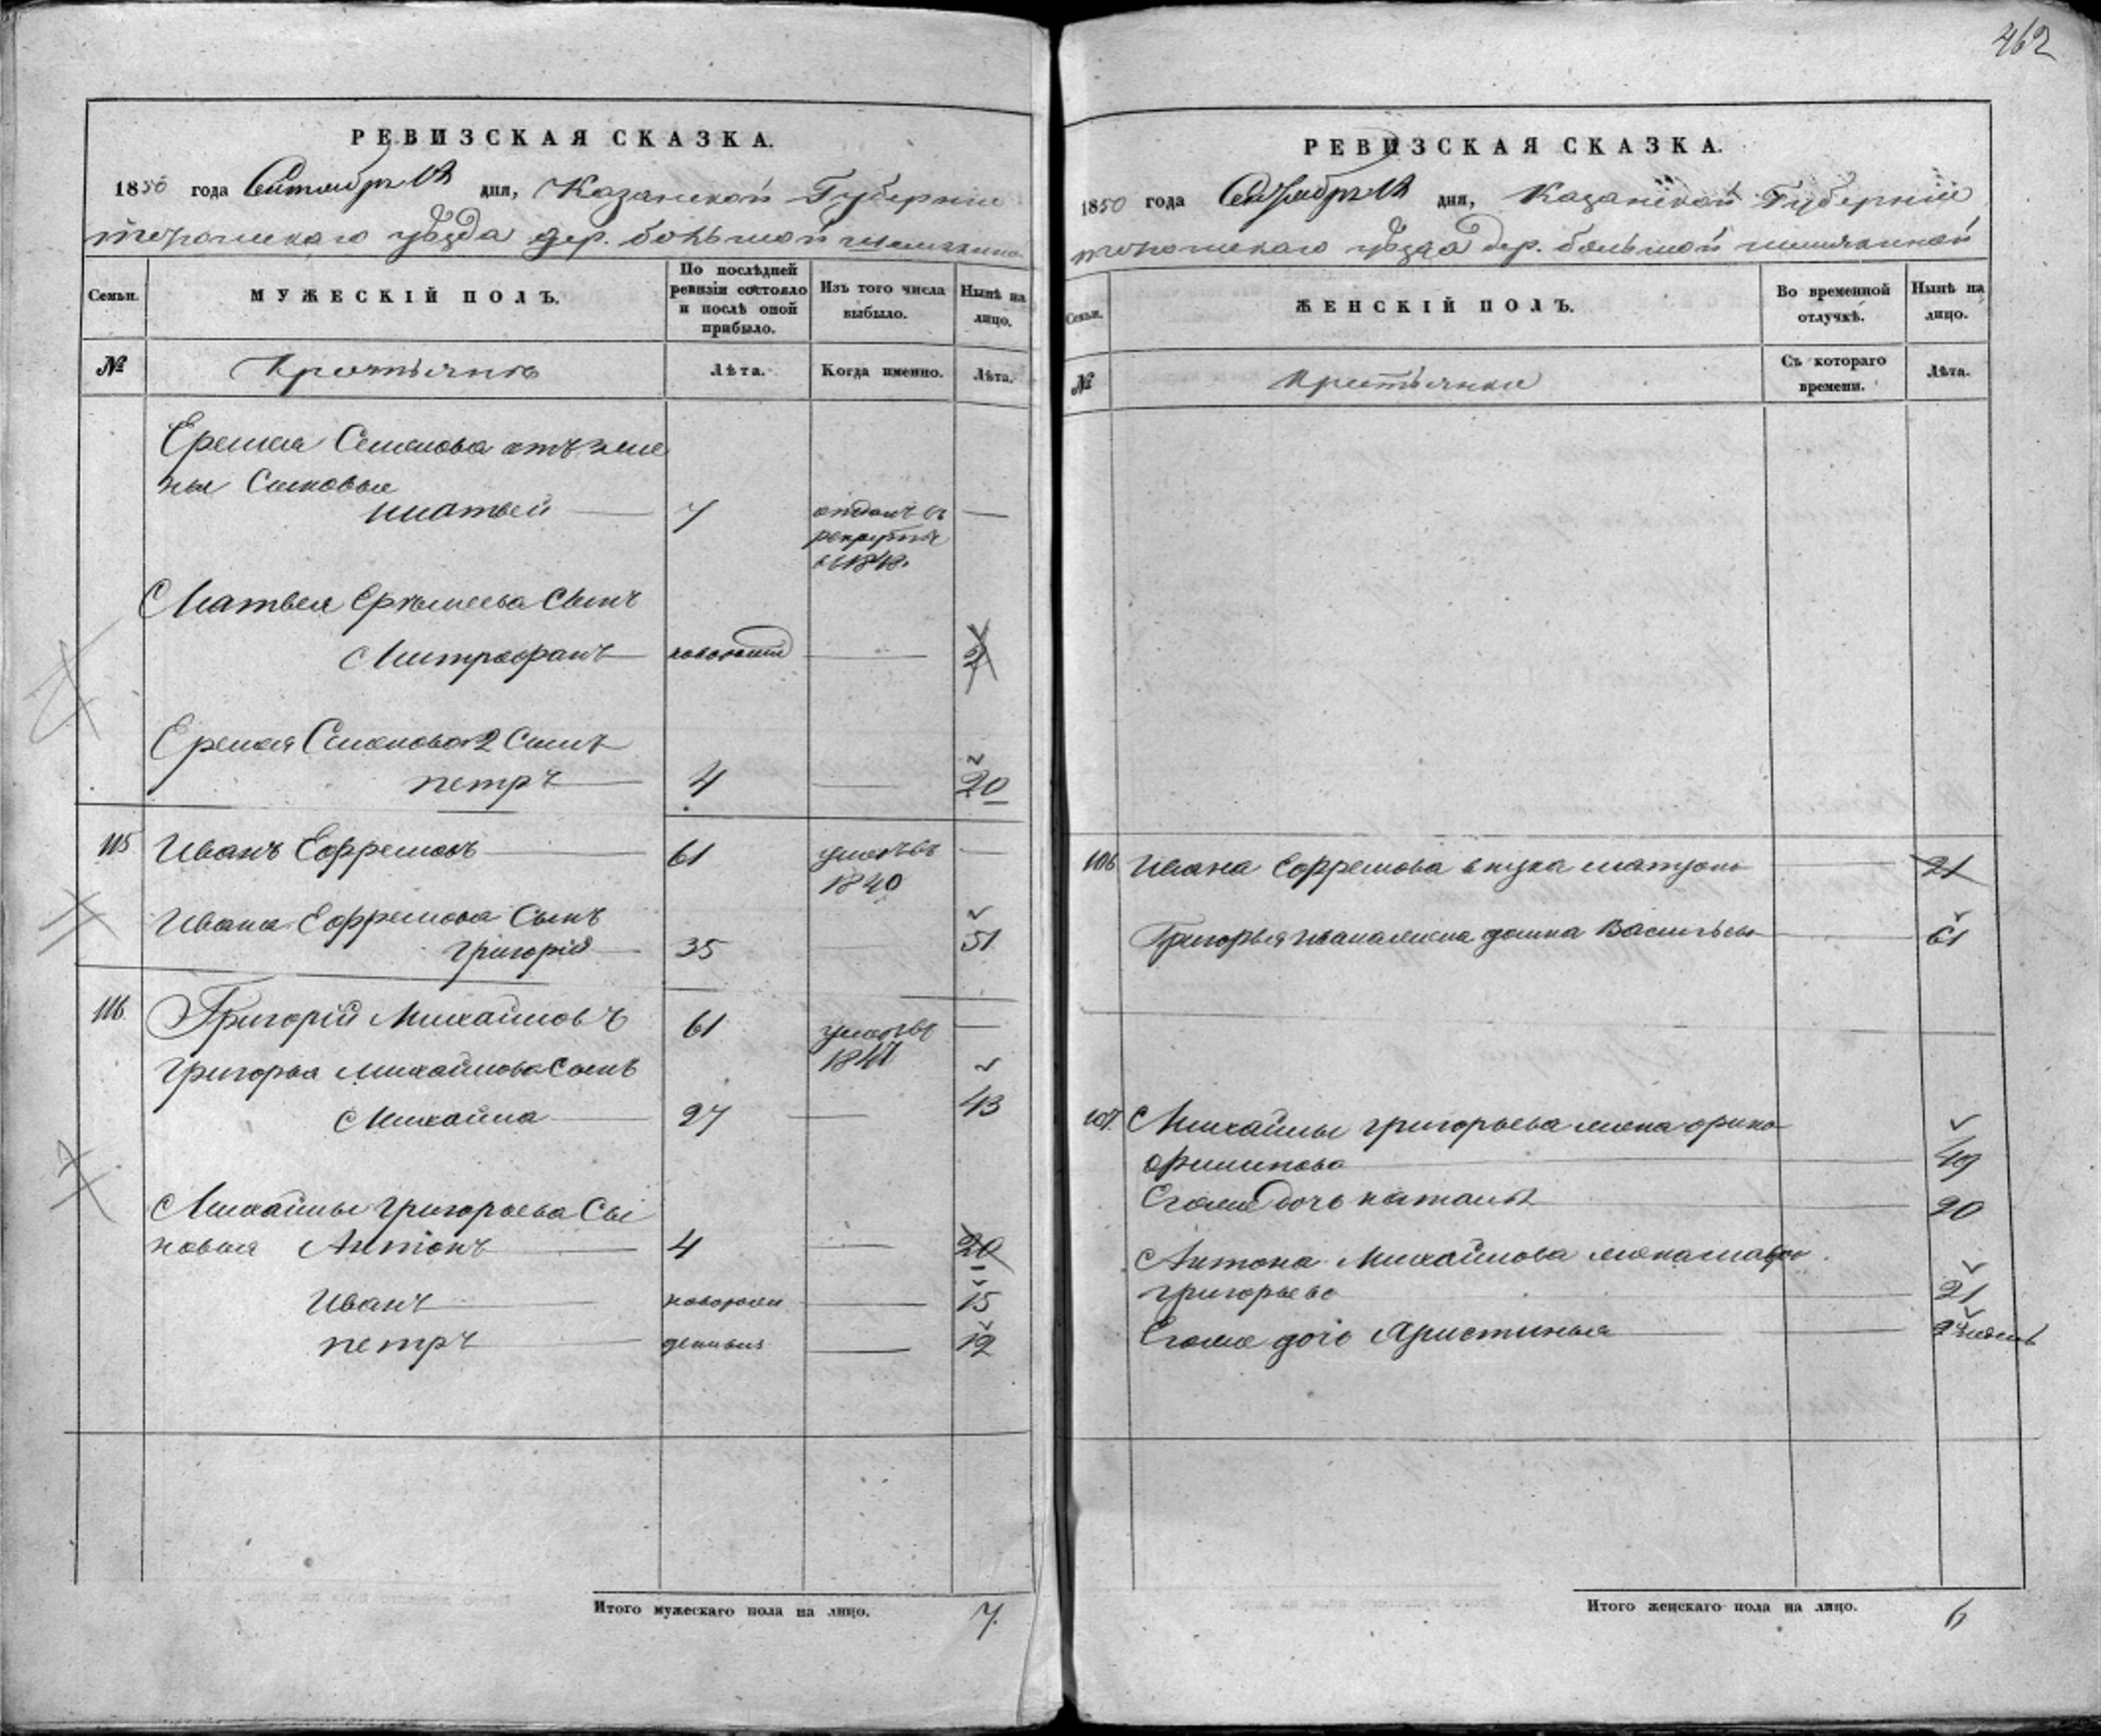 462
РЕВИЗСКАЯ СКАЗКА.
1850 года Сентября 12 дня, Казанской Губернии
уѣзда дер. большой
Семьи.
МУЖЕСКІЙ ПОЛЪ.
По послѣдней ревизіи состояло и послѣ оной прибыло.
Изъ того числа выбыло.
Нынѣ на лицо.
№
Лѣта.
Когда именно.
Лѣта.
Еремея Семенова отъ же
ны Сыновья
Матвей 7 отданъ въ
рекруты
в 1848.
Матвея Еремеева Сынъ
Митрофанъ новорожд 2
Еремея Семенова 2 Сынъ
петръ 4 20
115 Иванъ Ефремовъ 61 умеръ въ
1840
Ивана Ефремова Сынъ
григорій 35 51
116. Григорій Михайловъ 61 умеръ въ
1847
григорья михайлова Сынъ
Михайла 27 43
Михайлы григорьева Сы
новья Антонъ 4 20
Иванъ новорож 15
петръ 12
Итого мужескаго пола на лицо. 7.
РЕВИЗСКАЯ СКАЗКА.
1850 года Сентября 12 дня, Казанской Губерніи
уѣзда дер. большой
Семьи.
ЖЕНСКІЙ ПОЛЪ.
Во временной отлучкѣ.
Нынѣ на лицо.
№
крестьянки
Съ котораго времени.
Лѣта.
106 Ивана Ефремова внука 21
Григорья жена домна Васильева 61
107. Михайлы григорьева жена орина
49
Егоже дочь наталья 20
Антона Михайлова жена
григорьева 21
Егоже дочь
Итого женскаго пола на лицо. 6